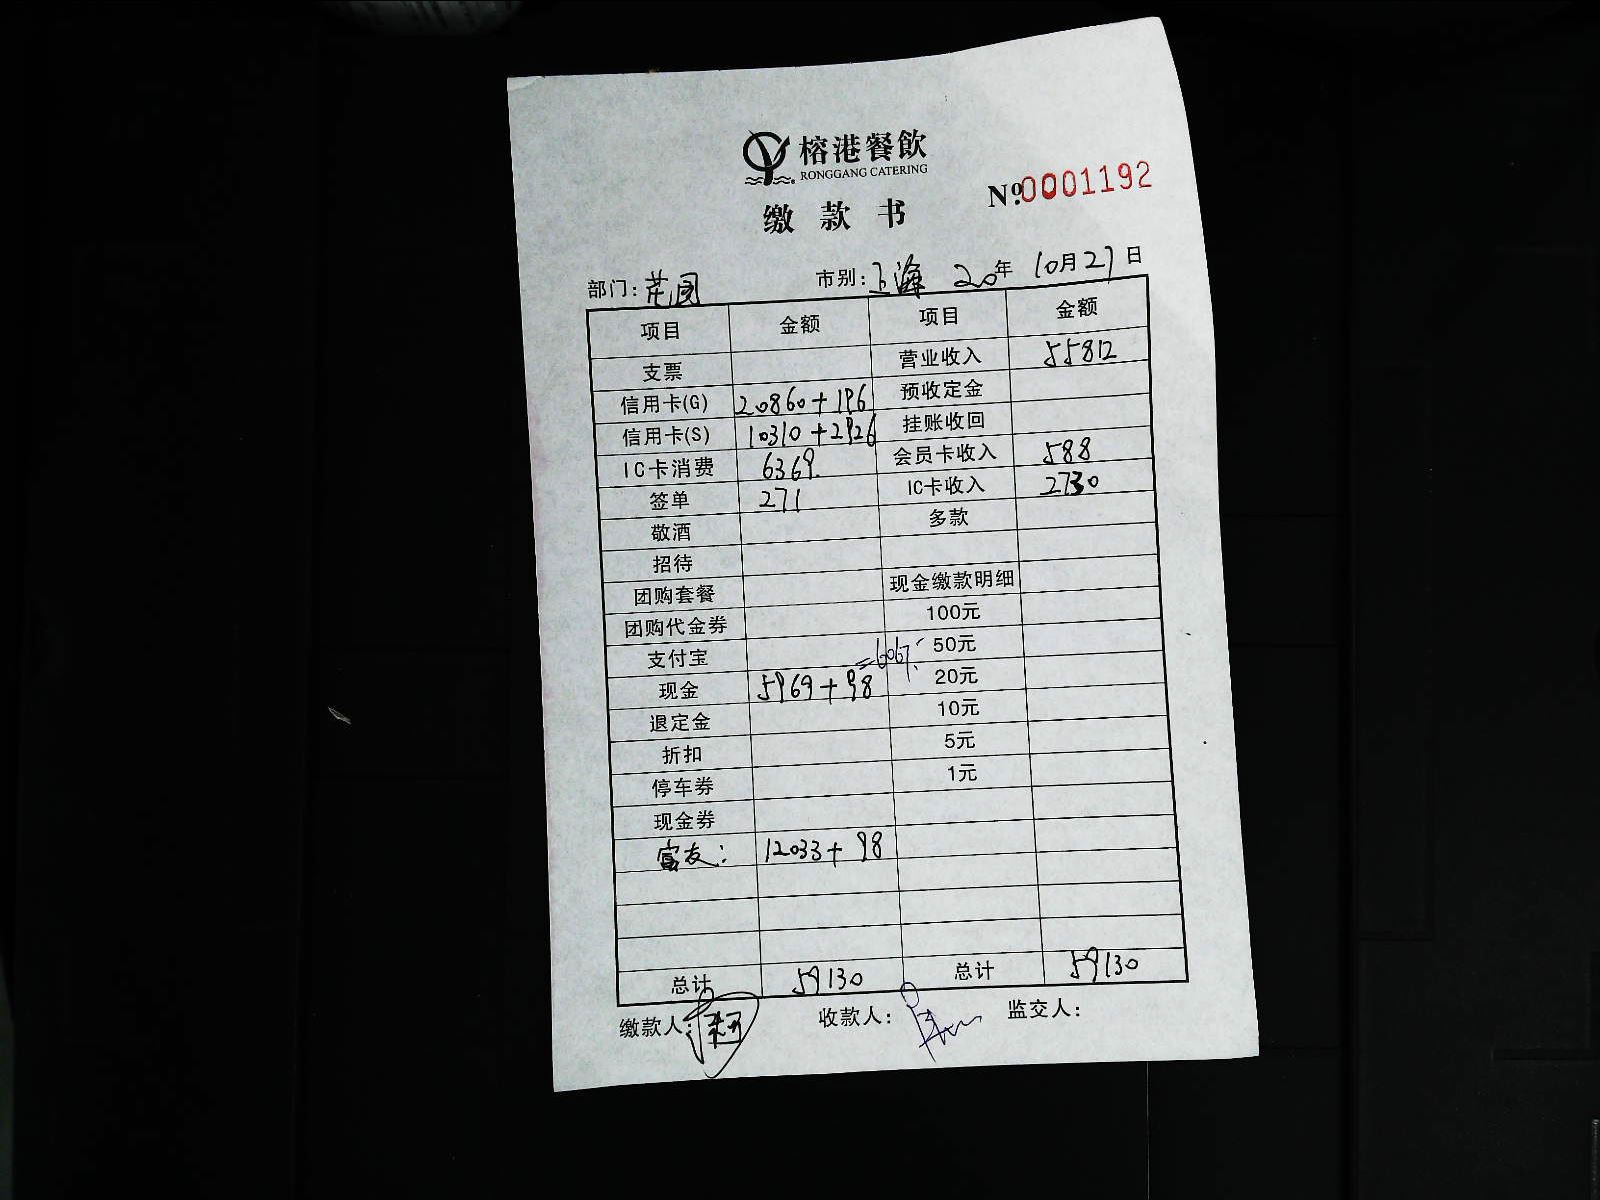 榕港餐飲
RONGGANG CATERING
缴款书
№0001192
部门: 花园 市别: 上海 20年10月27日
项目 金额 项目 金额
支票 营业收入 55812
信用卡(G) 20860+196 预收定金
信用卡(S) 10310+2926 挂账收回
IC卡消费 6369. 会员卡收入 588
签单 271 IC卡收入 2730
敬酒 多款
招待
团购套餐 现金缴款明细
团购代金券 100元
支付宝 =6067. 50元
现金 5969+98 20元
退定金 10元
折扣 5元
停车券 1元
现金券
富友: 12033+98
总计 59130 总计 59130
缴款人: 收款人: 监交人: